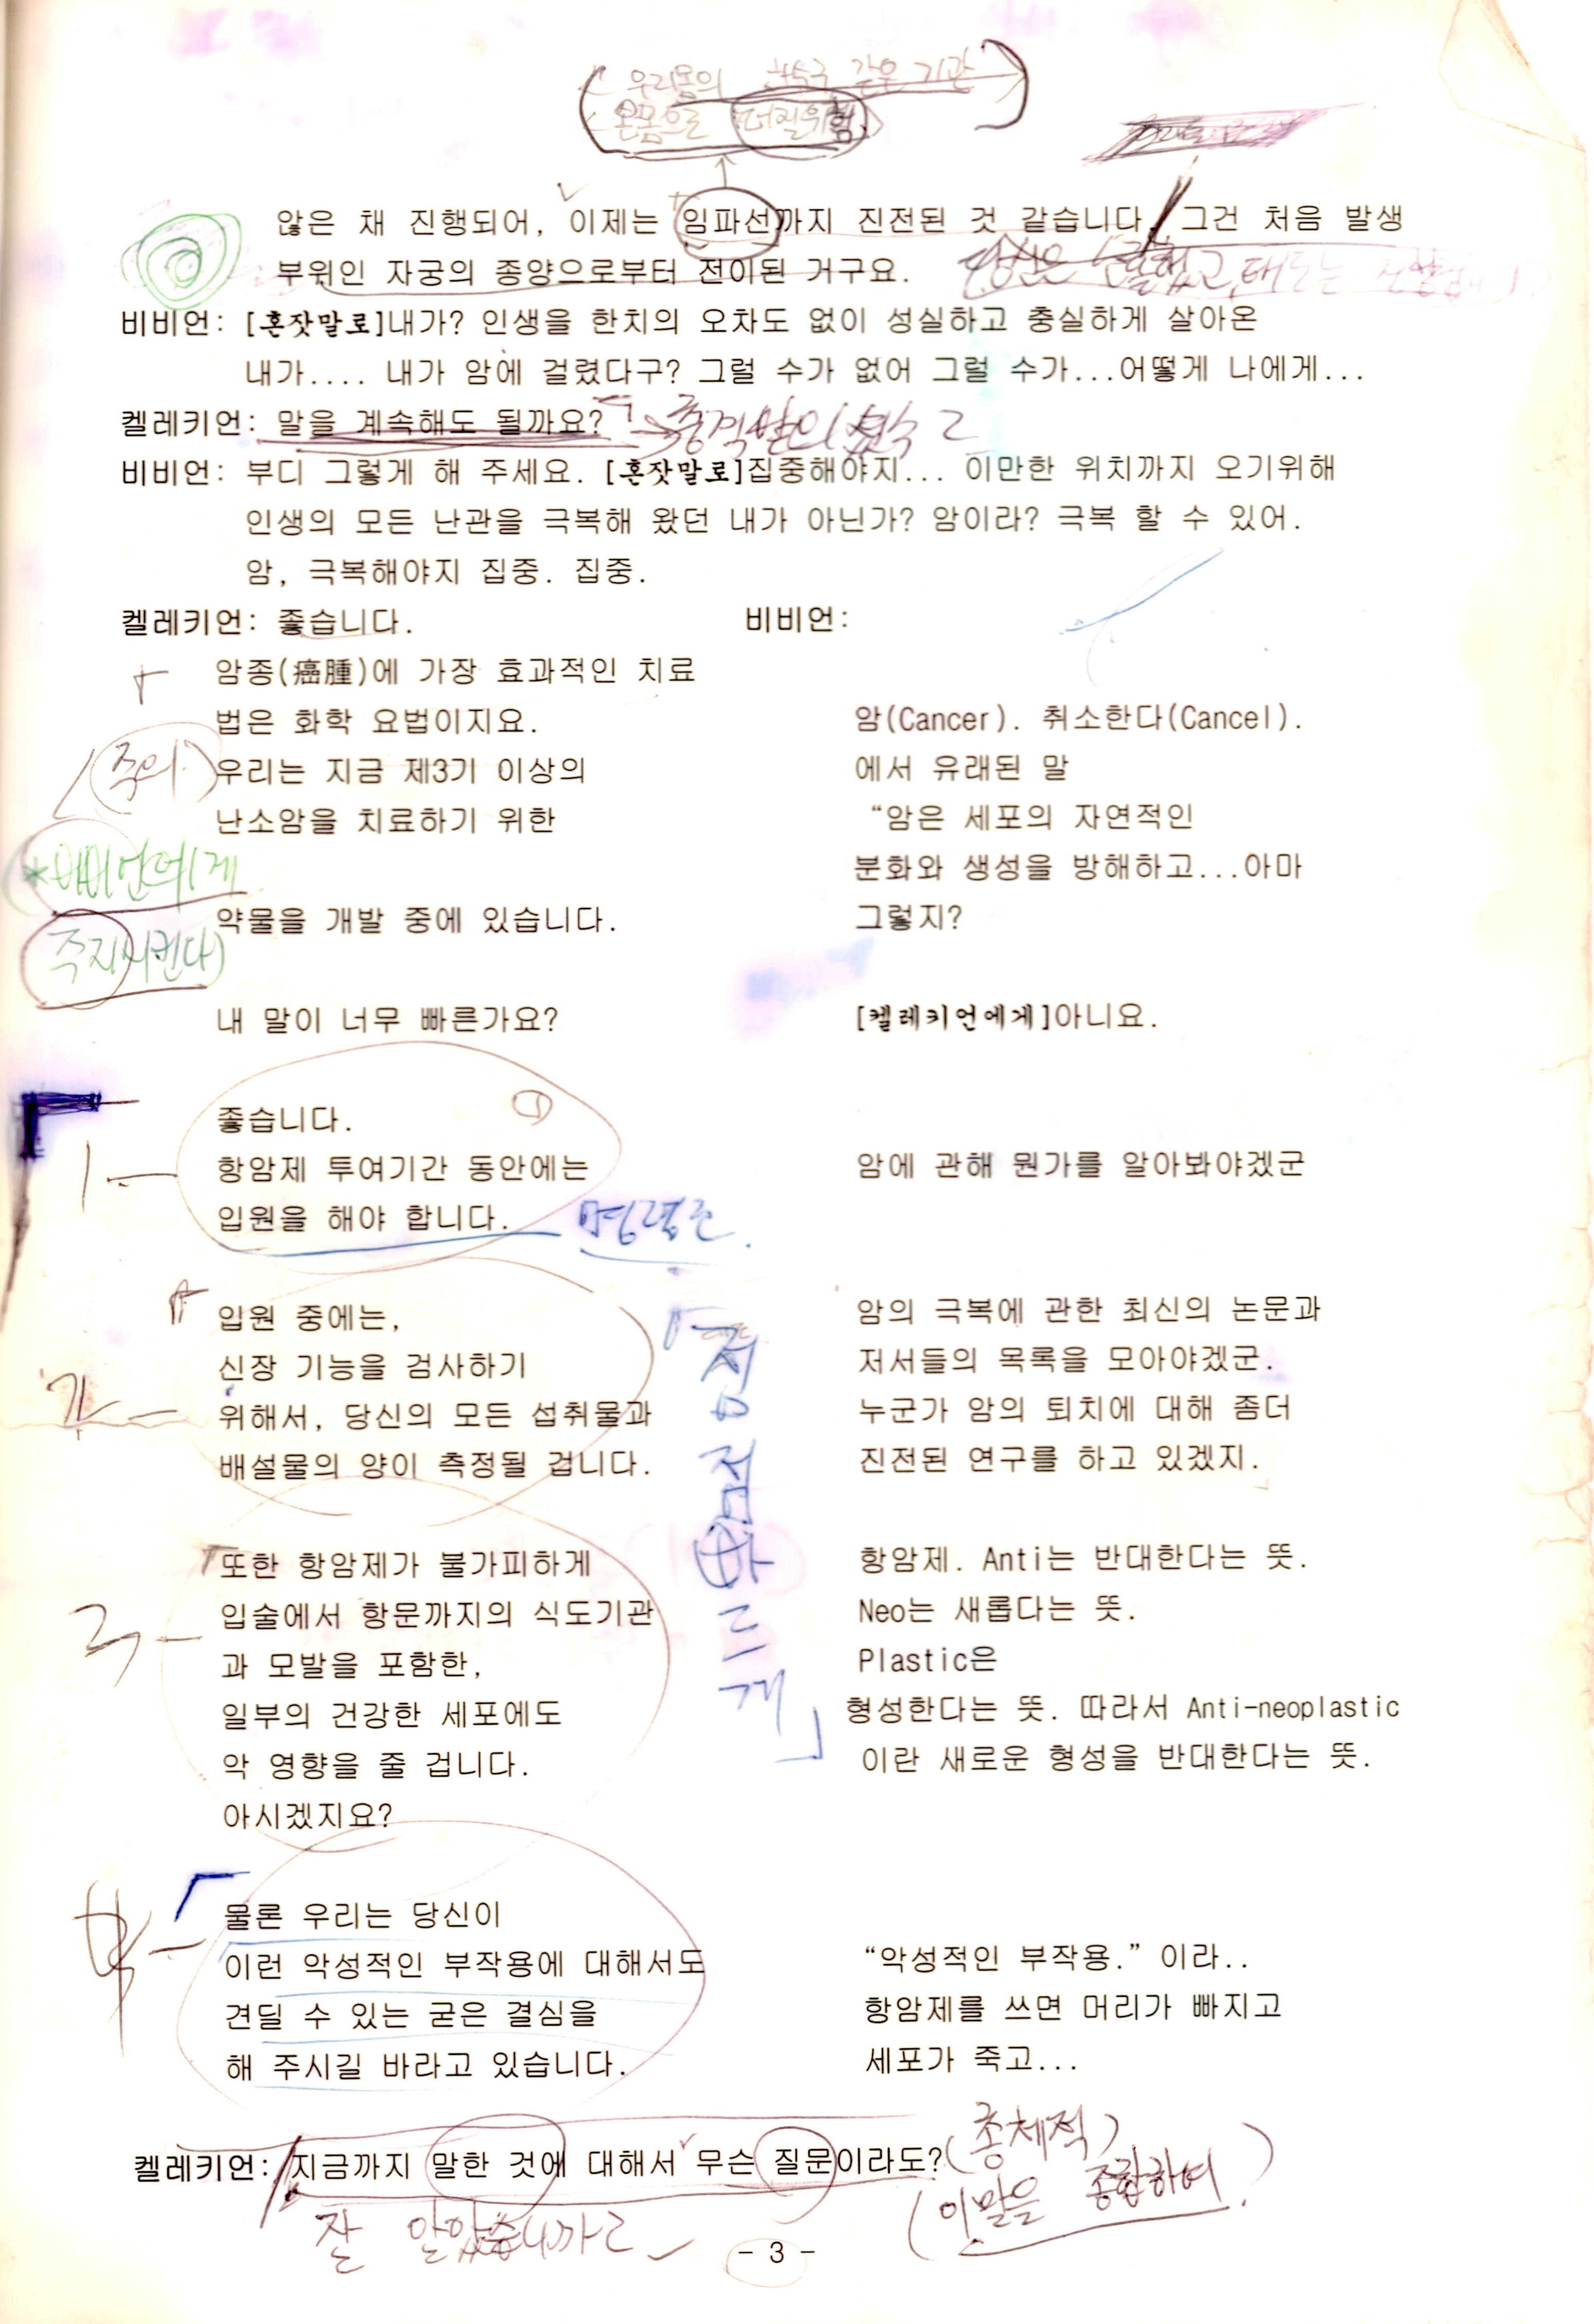 우리몸의 하수구 같은 기관
온몸으로 퍼질위험
않은 채 진행되어, 이제는 임파선까지 진전된 것 같습니다. 그건 처음 발생
부위인 자궁의 종양으로부터 전이된 거구요.
비비언: [혼잣말로]내가? 인생을 한치의 오차도 없이 성실하고 충실하게 살아온
내가.... 내가 암에 걸렸다구? 그럴 수가 없어 그럴 수가...어떻게 나에게...
켈레키언: 말을 계속해도 될까요?
비비언: 부디 그렇게 해 주세요. [혼잣말로]집중해야지... 이만한 위치까지 오기위해
인생의 모든 난관을 극복해 왔던 내가 아닌가? 암이라? 극복 할 수 있어.
암, 극복해야지 집중. 집중.
켈레키언: 좋습니다.
암종(癌腫)에 가장 효과적인 치료
법은 화학 요법이지요.
주의
우리는 지금 제3기 이상의
난소암을 치료하기 위한
*비비언에게
약물을 개발 중에 있습니다.
주지시킨다
내 말이 너무 빠른가요?
①
좋습니다.
1
항암제 투여기간 동안에는
입원을 해야 합니다.
명령조.
입원 중에는,
신장 기능을 검사하기
2
위해서, 당신의 모든 섭취물과
배설물의 양이 측정될 겁니다.
또한 항암제가 불가피하게
3
입술에서 항문까지의 식도기관
과 모발을 포함한,
일부의 건강한 세포에도
악 영향을 줄 겁니다.
아시겠지요?
물론 우리는 당신이
4
이런 악성적인 부작용에 대해서도
견딜 수 있는 굳은 결심을
해 주시길 바라고 있습니다.
비비언:
암(Cancer). 취소한다(Cancel).
에서 유래된 말
“암은 세포의 자연적인
분화와 생성을 방해하고...아마
그렇지?
[켈레키언에게]아니요.
암에 관해 뭔가를 알아봐야겠군
암의 극복에 관한 최신의 논문과
저서들의 목록을 모아야겠군.
누군가 암의 퇴치에 대해 좀더
진전된 연구를 하고 있겠지.
항암제. Anti는 반대한다는 뜻.
Neo는 새롭다는 뜻.
Plastic은
형성한다는 뜻. 따라서 Anti-neoplastic
이란 새로운 형성을 반대한다는 뜻.
“악성적인 부작용.” 이라..
항암제를 쓰면 머리가 빠지고
세포가 죽고...
켈레키언: 지금까지 말한 것에 대해서 무슨 질문이라도?
(총체적)
(이말을 종합하여)
잘 알았습니까?
- 3 -